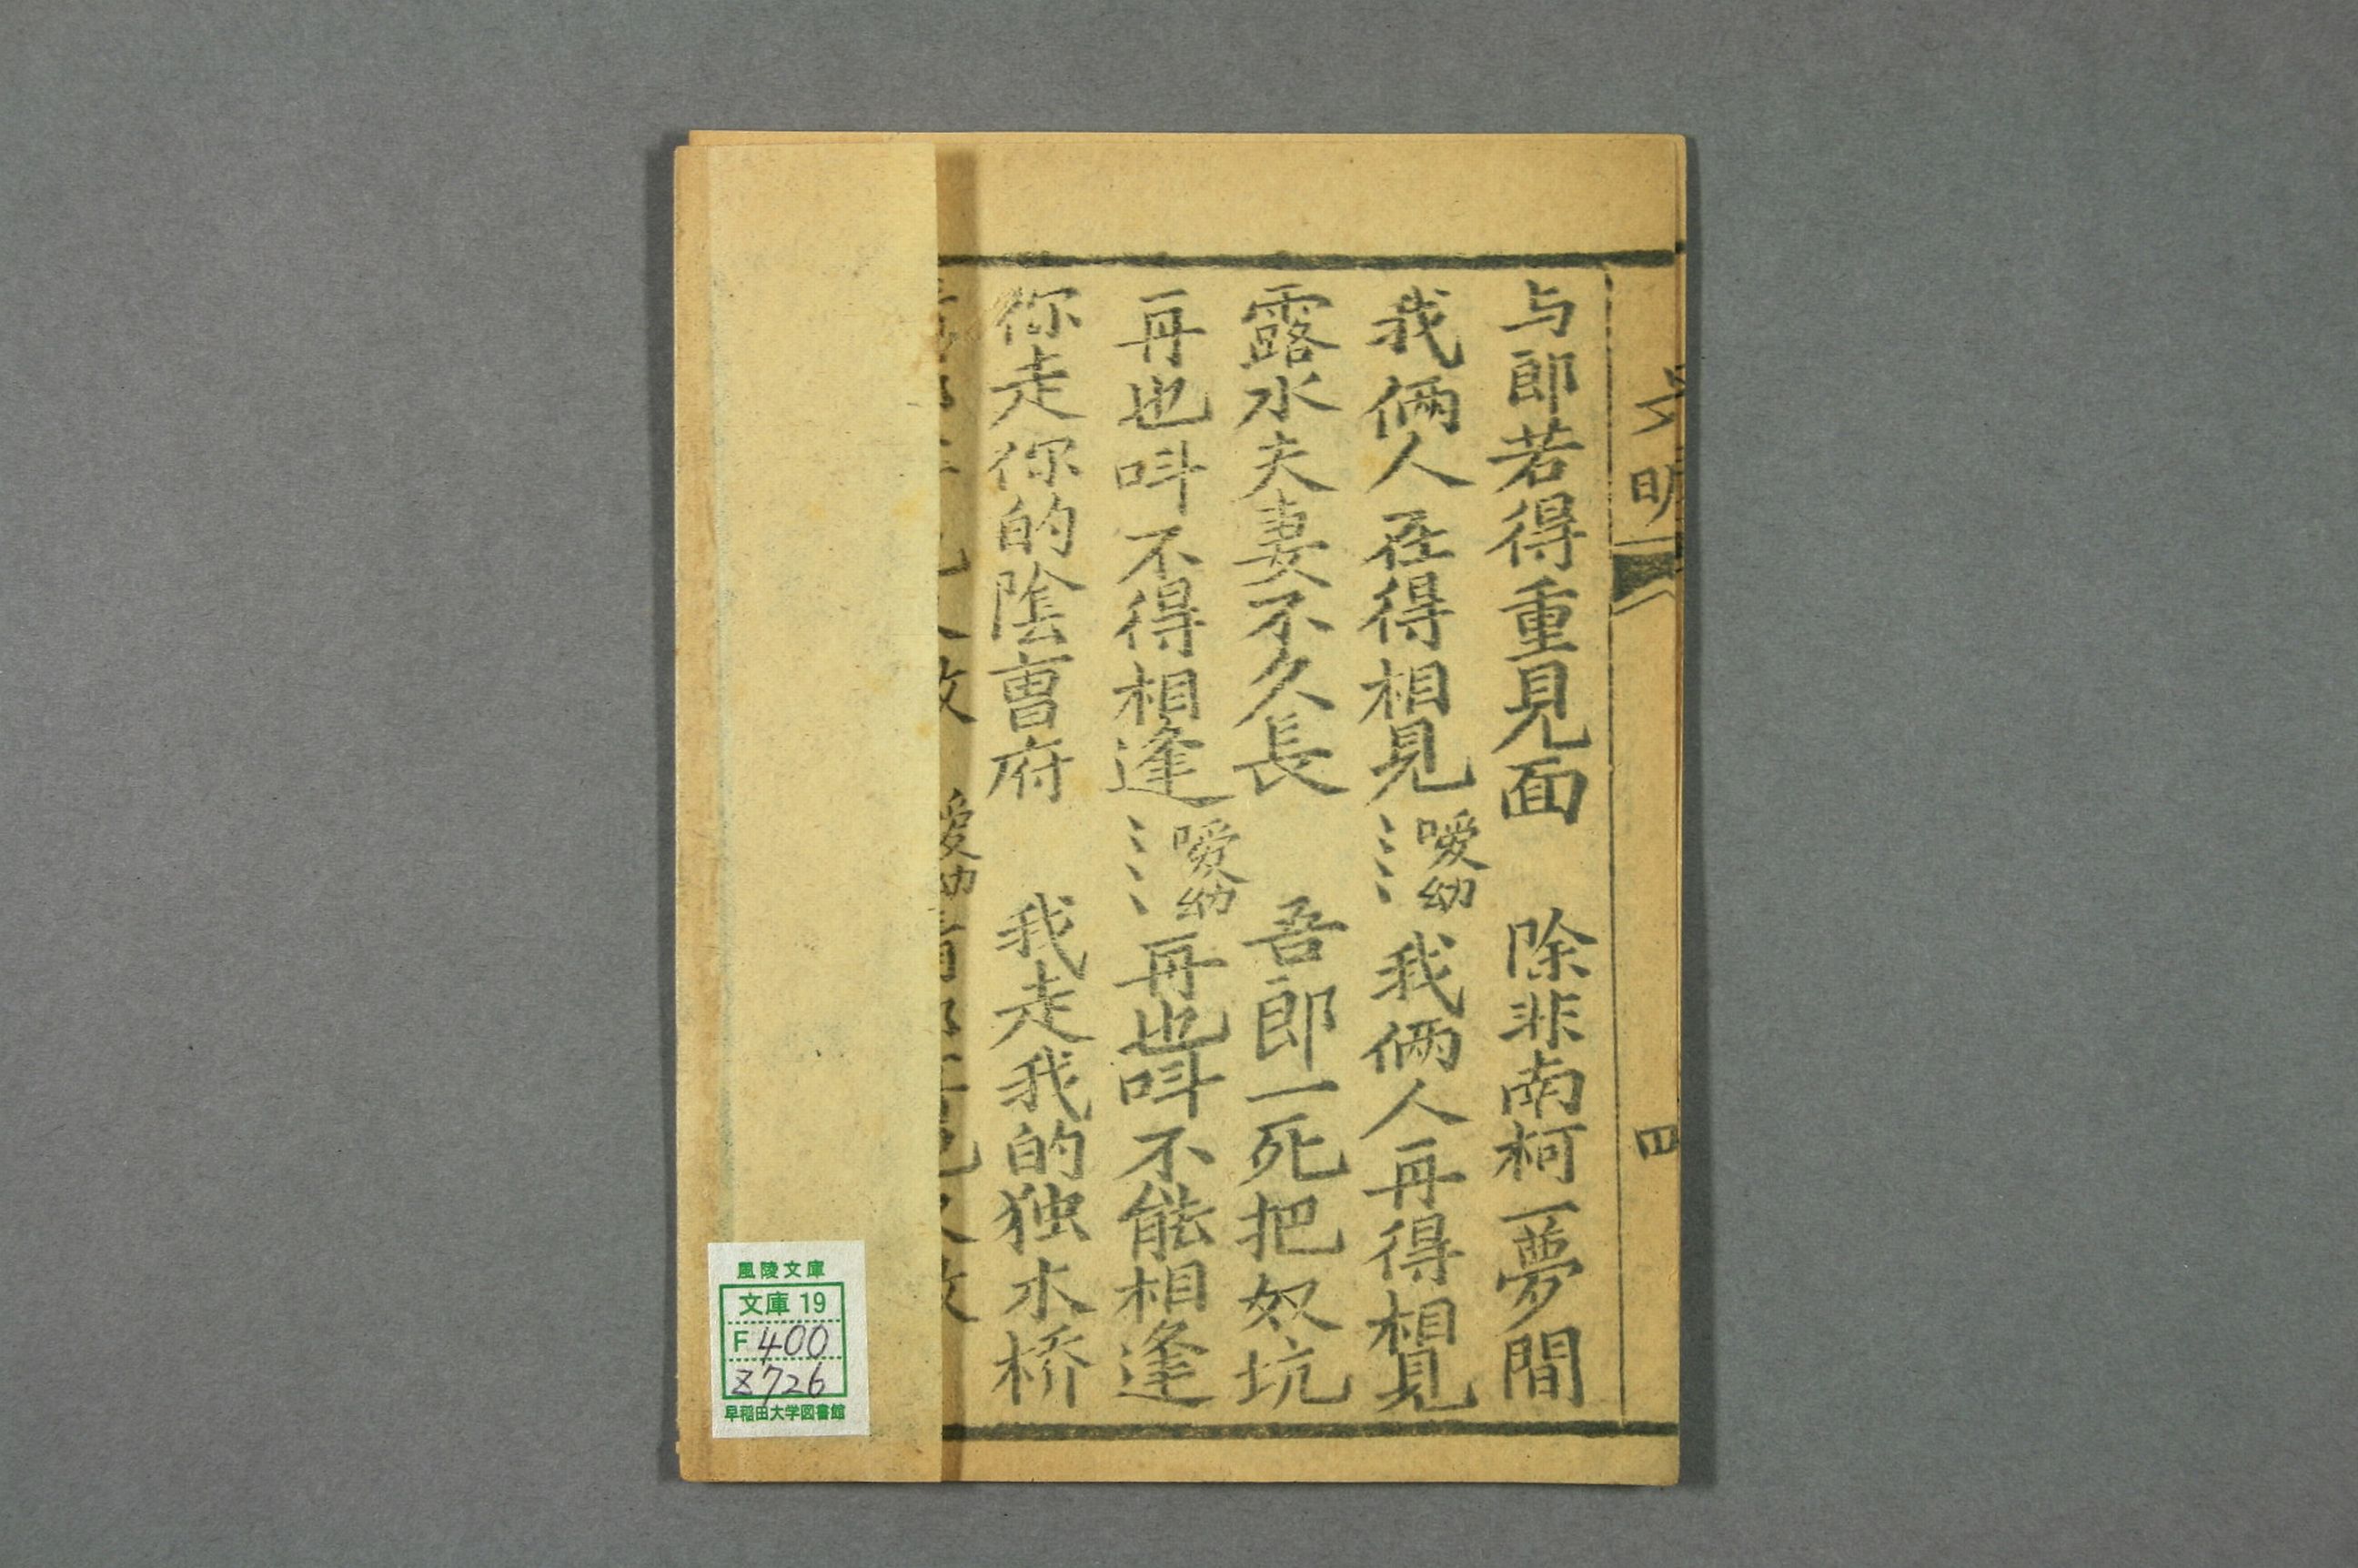 明
四
与郎若得重見面　除非南柯一夢間
我俩人在得相見ミミ噯幼我俩人再得相見
露水夫妻不久長　吾郎一死把奴坑
再也呌不得相逢ミミ噯幼再也呌不能相逢
你走你的陰曺府　我走我的独木桥
風陵文庫
文庫 19
F 400
Z 726
早稲田大学図書館